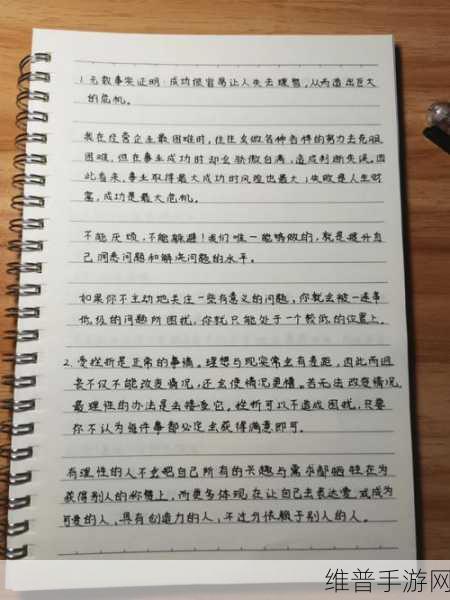 1.无数事实证明:成功很容易让人失去理智,从而造出巨大
的危机。
我在经营企业最困难时,往往会做各种各样的努力去克服
困难,但在事业成功时却会骄傲自满,造成判断失误。因
此看来,事业取得最大成功时风险也最大!失败是人生财
富,成功是最大危机。
不能厌烦,不能躲避!我们唯一能够做的,就是提升自
己洞悉问题和解决问题的水平。
如果你不主动地关注一些有意义的问题,你就会被一连串
低级的问题所困扰,你就只能处于一个较低的位置上。
2.受挫折是正常的事情。理想与现实常会有差距,因此而沮
丧不仅不能改变情况,还会使情况更糟。若无法改变情况,
最理性的办法是去接受它。挫折可以不造成困扰,只要
你不认为每件事都必定会获得满意即可。
有理性的人不会把自己所有的兴趣与需求都牺牲在为
获得别人的称赞上,而更多体现在让自己去表达爱或成为
可爱的人,具有创造力的人,不过分依赖于别人的人。
维普手游网